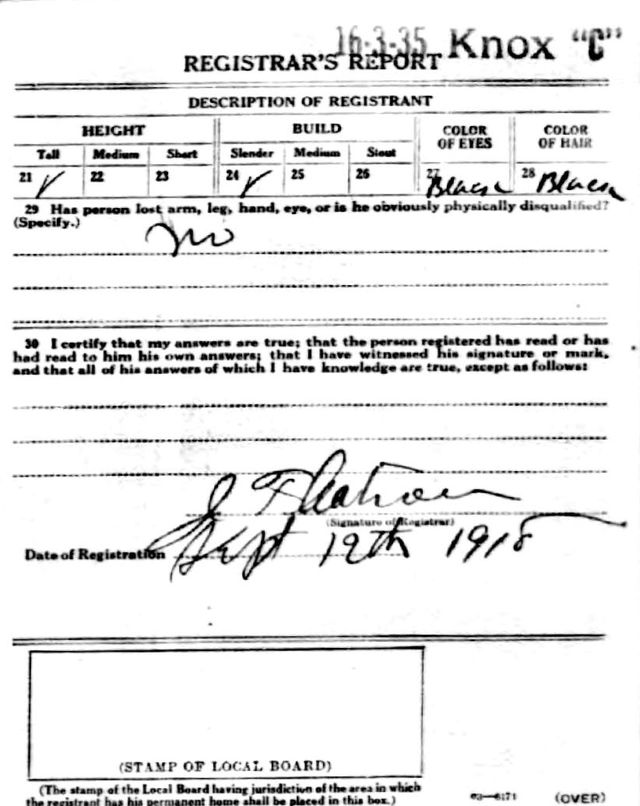 16-3-35 Knox "C"
REGISTRAR'S REPORT
DESCRIPTION OF REGISTRANT
HEIGHT BUILD COLOR OF EYES COLOR OF HAIR
Tall Medium Short Slender Medium Stout
21 ✓ 22 23 24 ✓ 25 26 27 Black 28 Black
29 Has person lost arm, leg, hand, eye, or is he obviously physically disqualified?
(Specify.)
no
30 I certify that my answers are true; that the person registered has read or has
had read to him his own answers; that I have witnessed his signature or mark,
and that all of his answers of which I have knowledge are true, except as follows:
J
(Signature of Registrar)
Date of Registration Sept 12th 1918
(STAMP OF LOCAL BOARD)
(The stamp of the Local Board having jurisdiction of the area in which
the registrant has his permanent home shall be placed in this box.)
03—6171 (OVER)